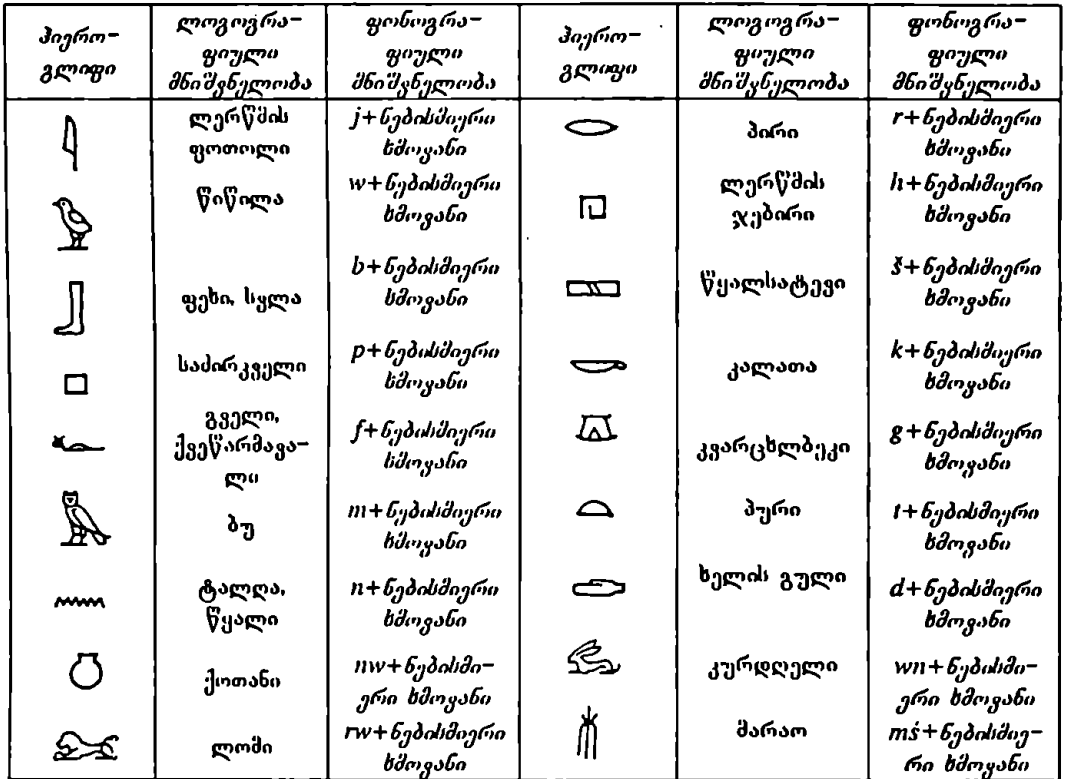 ჰიერო-
გლიფი
ლოგოგრა-
ფიული
მნიშვნელობა
ფონოგრა-
ფიული
მნიშვნელობა
ჰიერო-
გლიფი
ლოგოგრა-
ფიული
მნიშვნელობა
ფონოგრა-
ფიული
მნიშვნელობა
ლერწმის
ფოთოლი
j+ნებისმიერი
ხმოვანი
პირი
r+ნებისმიერი
ხმოვანი
წიწილა
w+ნებისმიერი
ხმოვანი
ლერწმის
ჯებირი
h+ნებისმიერი
ხმოვანი
ფეხი, სულა
b+ნებისმიერი
ხმოვანი
წყალსატევი
š+ნებისმიერი
ხმოვანი
საძირკველი
p+ნებისმიერი
ხმოვანი
კალათა
k+ნებისმიერი
ხმოვანი
გველი,
ქვეწარმავა-
ლი
f+ნებისმიერი
ხმოვანი
კვარცხლბეკი
g+ნებისმიერი
ხმოვანი
ბუ
m+ნებისმიერი
ხმოვანი
პური
t+ნებისმიერი
ხმოვანი
ტალღა,
წყალი
n+ნებისმიერი
ხმოვანი
ხელის გული
d+ნებისმიერი
ხმოვანი
ქოთანი
nw+ნებისმი-
ერი ხმოვანი
კურდღელი
wn+ნებისმი-
ერი ხმოვანი
ლომი
rw+ნებისმიერი
ხმოვანი
მარაო
mś+ნებისმიე-
რი ხმოვანი